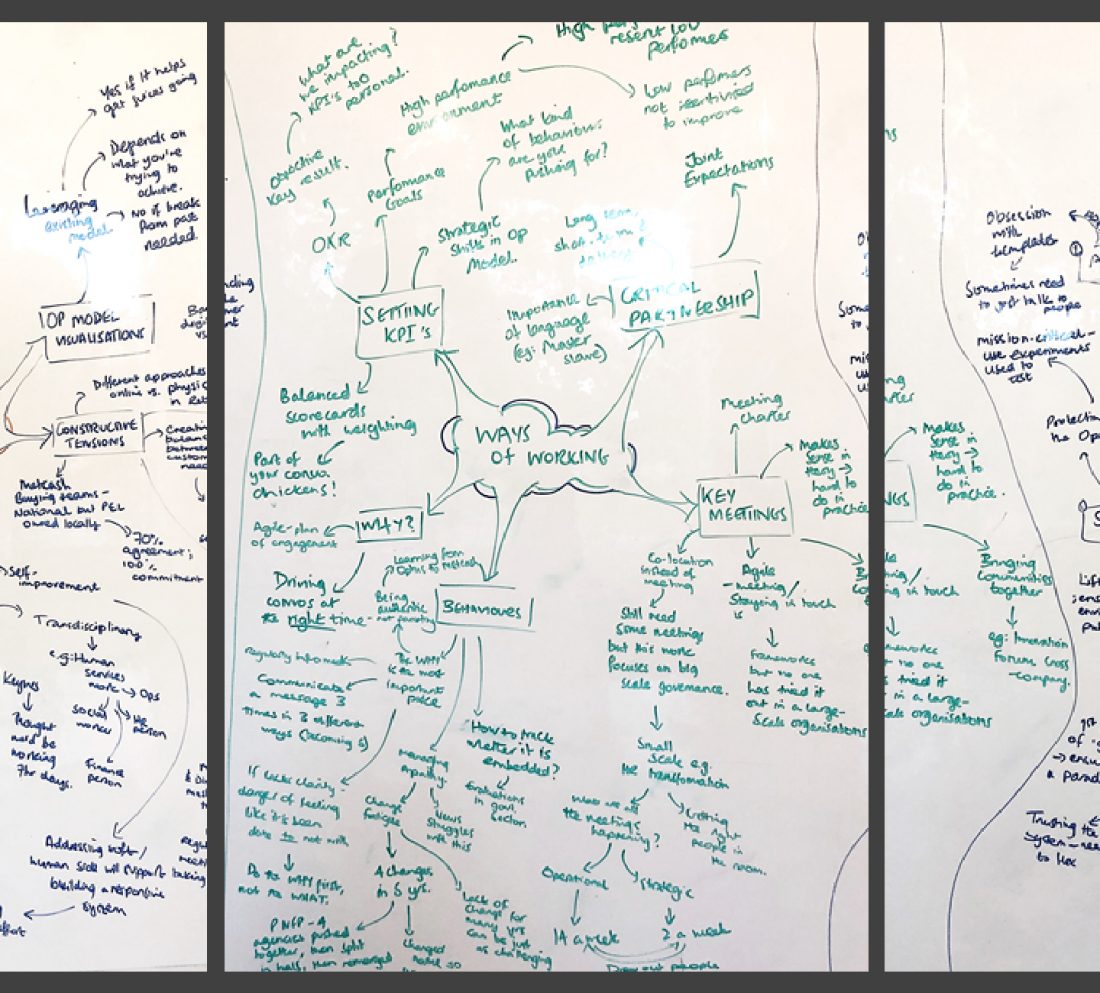 Yes if it helps
get juices going
Depends on
what you're
trying to
achieve.
Leveraging
existing
model
No if break
from past
needed
OP MODEL
VISUALISATIONS
Different approaches
online vs. physic
CONSTRUCTIVE
TENSIONS
Creatin
balance
between
custom
need
Metcash
Buying teams -
National but P&L
owned locally
70%
agreement;
100%
commitment
self-
improvement
Transdisciplinary
e.g: Human
services
work
Ops
social
worker
HR
person
Finance
person
Keynes
thought
we'd be
working
7hr days.
Addressing
human side will support
building a responsive
system
What are
we impacting?
KPI's too
personal.
Objective
Key result.
OKR
High performance
environment
Performance
Goals
resent low
performers
Low performers
not incentivised
to improve
What kind
of behaviours
are you
pushing for?
Strategic
shifts in Op
Model.
Joint
Expectations
Long term,
short-term
SETTING
KPI's
Importance
of language
(eg: Master
slave)
CRITICAL
PARTNERSHIP
Balanced
scorecards
with weighting
Part of
your convo.
chickens!
WAYS
OF WORKING
Meeting
charter
Makes
sense in
theory →
hard to
do in
practice.
KEY
MEETINGS
WHY?
Agile-plan
of engagement
Driving
convos at
the right time
Learning from
Being
authentic
- not parroting
BEHAVIOURS
The WHY
is the most
important
piece
Communicate
a message 3
times in 3 different
ways (becoming 6)
If lacks clarity -
danger of feeling
like it's been
done to not with
Do the WHY first,
not the WHAT.
Managing
Apathy
Change
fatigue
News
struggles
with this
4 changes
in 5 yrs.
PNFP - 4
agencies pushed
together, then split
in half, then remerged
changed
Lack of
change for
many yrs
can be just
as challenging
How to track
whether it is
embedded?
Evaluations
in govt.
sector.
Co-location
instead of
meeting
Still need
some meetings
but this more
focuses on big
scale governance.
Small
scale e.g.
the transformation
the meetings
happening?
Getting
the right
people in
the room.
Operational
Strategic
14 a week
2 a week
Draw out
people
Agile
- meeting/
Staying in touch
is
Frameworks
but no one
has tried it
out in a large-
scale organisations
Makes
sense in
theory →
hard to
do in
practice.
Bringing
Communities
together
eg: Innovation
Forum Cross
-company.
in touch
no one
tried it
in a large-
organisations
Obsession
with
templates
Sometimes need
to just talk to
people
mission-critical -
use experiments
used to
test
Protectin
the Op
Trusting the
system - nee
to flex